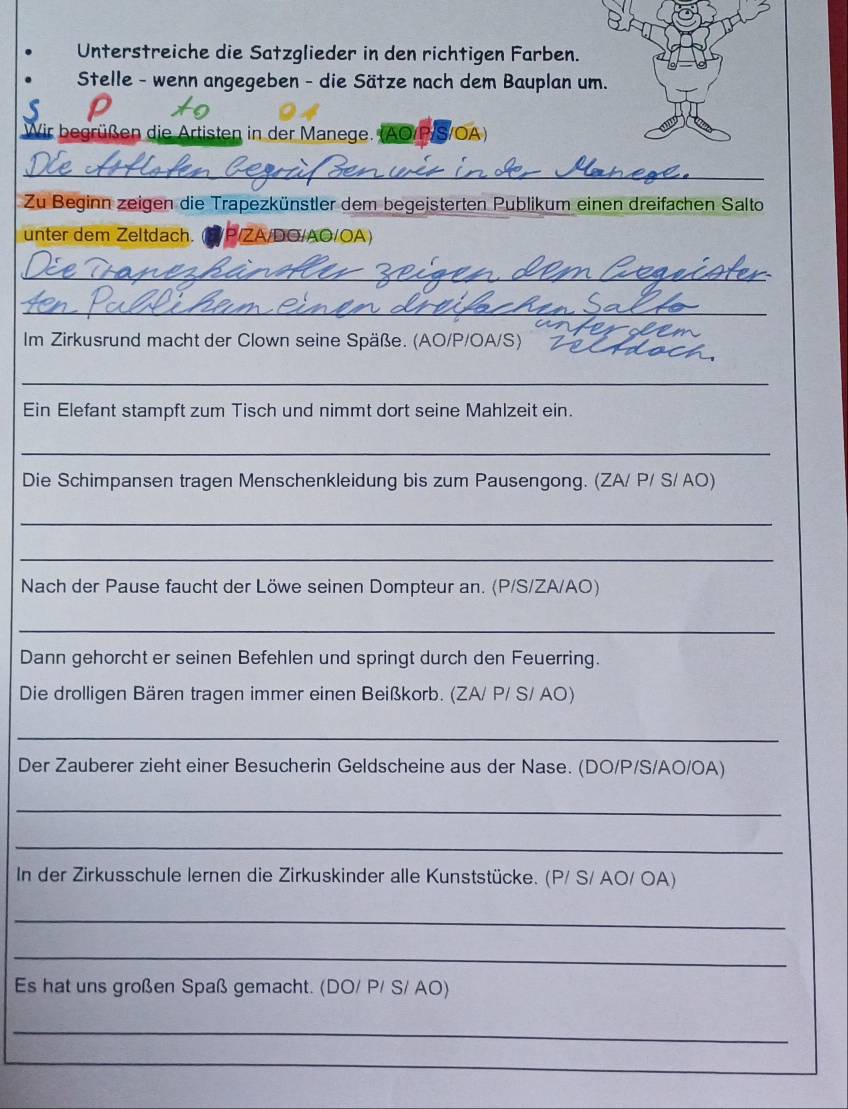 • Unterstreiche die Satzglieder in den richtigen Farben.
• Stelle - wenn angegeben - die Sätze nach dem Bauplan um.
S P AO OA
Wir begrüßen die Artisten in der Manege. (AO/P/S/OA)
Die Artisten begrüßen wir in der Manege.
Zu Beginn zeigen die Trapezkünstler dem begeisterten Publikum einen dreifachen Salto
unter dem Zeltdach. (S/P/ZA/DO/AO/OA)
Die Trapezkünstler zeigen dem begeister-
ten Publikum einen dreifachen Salto
unter dem
Zeltdach.
Im Zirkusrund macht der Clown seine Späße. (AO/P/OA/S)
Ein Elefant stampft zum Tisch und nimmt dort seine Mahlzeit ein.
Die Schimpansen tragen Menschenkleidung bis zum Pausengong. (ZA/ P/ S/ AO)
Nach der Pause faucht der Löwe seinen Dompteur an. (P/S/ZA/AO)
Dann gehorcht er seinen Befehlen und springt durch den Feuerring.
Die drolligen Bären tragen immer einen Beißkorb. (ZA/ P/ S/ AO)
Der Zauberer zieht einer Besucherin Geldscheine aus der Nase. (DO/P/S/AO/OA)
In der Zirkusschule lernen die Zirkuskinder alle Kunststücke. (P/ S/ AO/ OA)
Es hat uns großen Spaß gemacht. (DO/ P/ S/ AO)